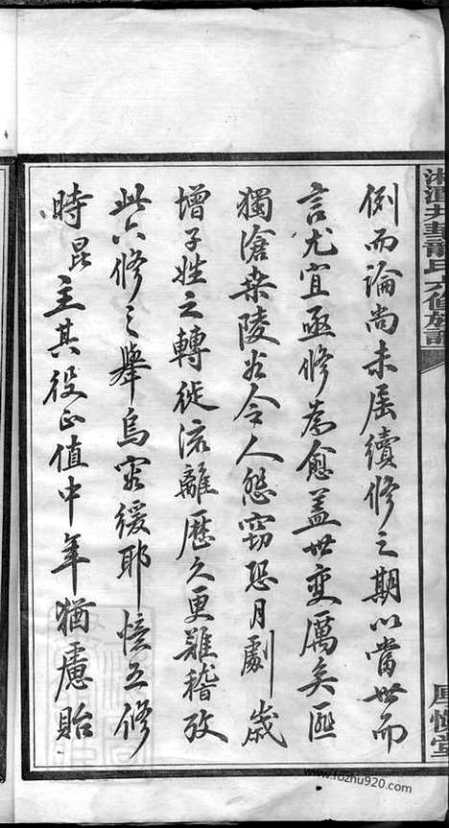 例而論尚未屆續修之期以當世而
言尤宜亟修為愈蓋世變厲矣匪
獨滄桑陵谷令人愁竊恐月劇歲
增子姓之轉徙流離歷久更難稽攷
此六修之舉烏容緩耶憶五修
時昆主其役正值中年猶慮貽
氏六修族譜
厚慎堂
www.fozhu920.com